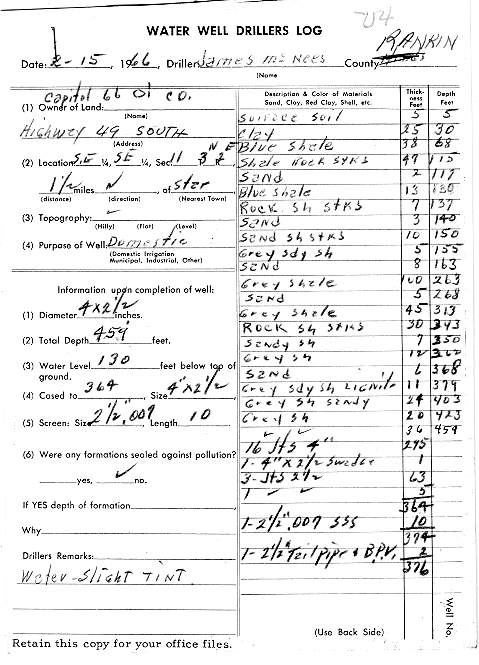 U4
WATER WELL DRILLERS LOG
RANKIN
Date: 2-15, 1966, Driller James McNees County
(Name)
Capitol 66 Oil Co.
(1) Owner of Land:
(Name)
Highway 49 SOUTH
(Address)
N E
(2) Location SE 1/4, SE 1/4, Sec. 11 T. 3 R. 2
1 1/2 miles N, of Star
(distance) (direction) (Nearest Town)
(3) Topography:
(Hilly) (Flat) (Level)
(4) Purpose of Well: Domestic
(Domestic Irrigation
Municipal, Industrial, Other)
Information upon completion of well:
(1) Diameter 4x2 1/2 inches.
(2) Total Depth 459 feet.
(3) Water Level 130 feet below top of
ground.
(4) Cased to 364 Size 4"x2 1/2
(5) Screen: Size 2 1/2 .007 Length 10
(6) Were any formations sealed against pollution?
yes, ✓ no.
If YES depth of formation
Why
Drillers Remarks:
Water-Slight TINT
Description & Color of Materials
Sand, Clay, Red Clay, Shell, etc.
Thick-
ness
Feet
Depth
Feet
Surface Soil 5 5
Clay 25 30
Blue Shale 38 68
Shale Rock STKS 47 115
Sand 2 117
Blue Shale 13 130
Rock Sh STKS 7 137
Sand 3 140
Sand Sh STKS 10 150
Grey Sdy Sh 5 155
Sand 8 163
Grey Shale 100 263
Sand 5 268
Grey Shale 45 313
Rock Sh STKS 30 343
Sandy Sh 7 350
Grey Sh 12 362
Sand 6 368
Grey Sdy Sh Lignite 11 379
Grey Sh Sandy 24 403
Grey Sh 20 423
✓ ✓ 36 459
16 Jts 4" 295
1- 4" X 2 1/2 Swedge 1
3- Jts 2 1/2 63
1 ✓ ✓ 5
364
1-2 1/2" .007 SSS 10
374
1- 2 1/2" Tailpipe & B.P.V. 2
376
Well No.
(Use Back Side)
Retain this copy for your office files.